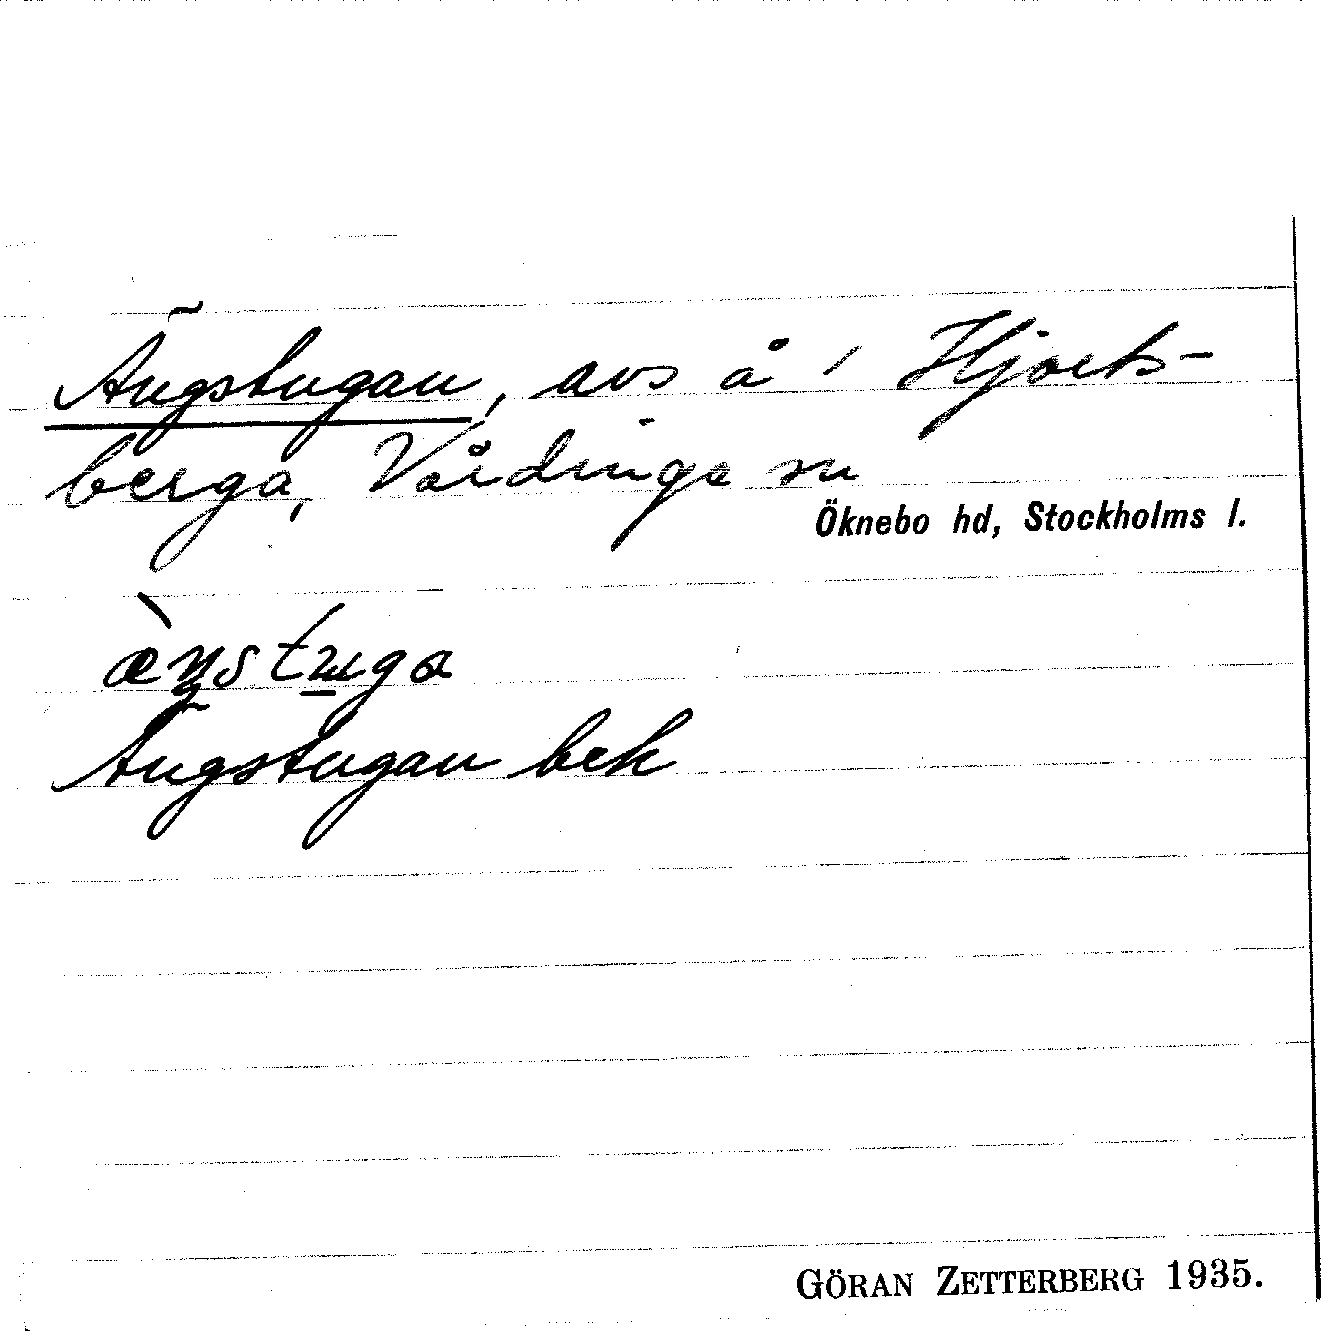 Ängstugan, avs å i Hjorts-
berga, Vårdinge sn
Öknebo hd, Stockholms l.
æ̀ŋstuga
Ängstugan bek
GÖRAN ZETTERBERG 1935.